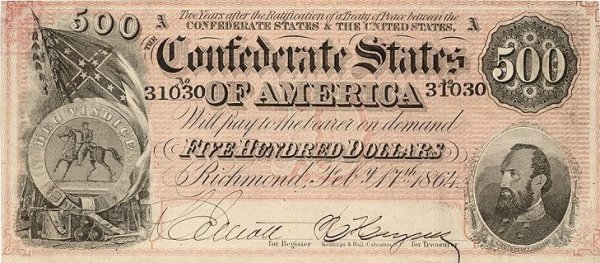 500 A Two Years after the Ratification of a Treaty of Peace between the
CONFEDERATE STATES & THE UNITED STATES, A
THE Confederate States 500
No 31030 OF AMERICA No 31030
DEO VINDICE
Will pay to the bearer on demand
FIVE HUNDRED DOLLARS
Richmond, Feby. 17th 1864.
for Register Keatinge & Ball, Columbia, S.C. for Treasurer